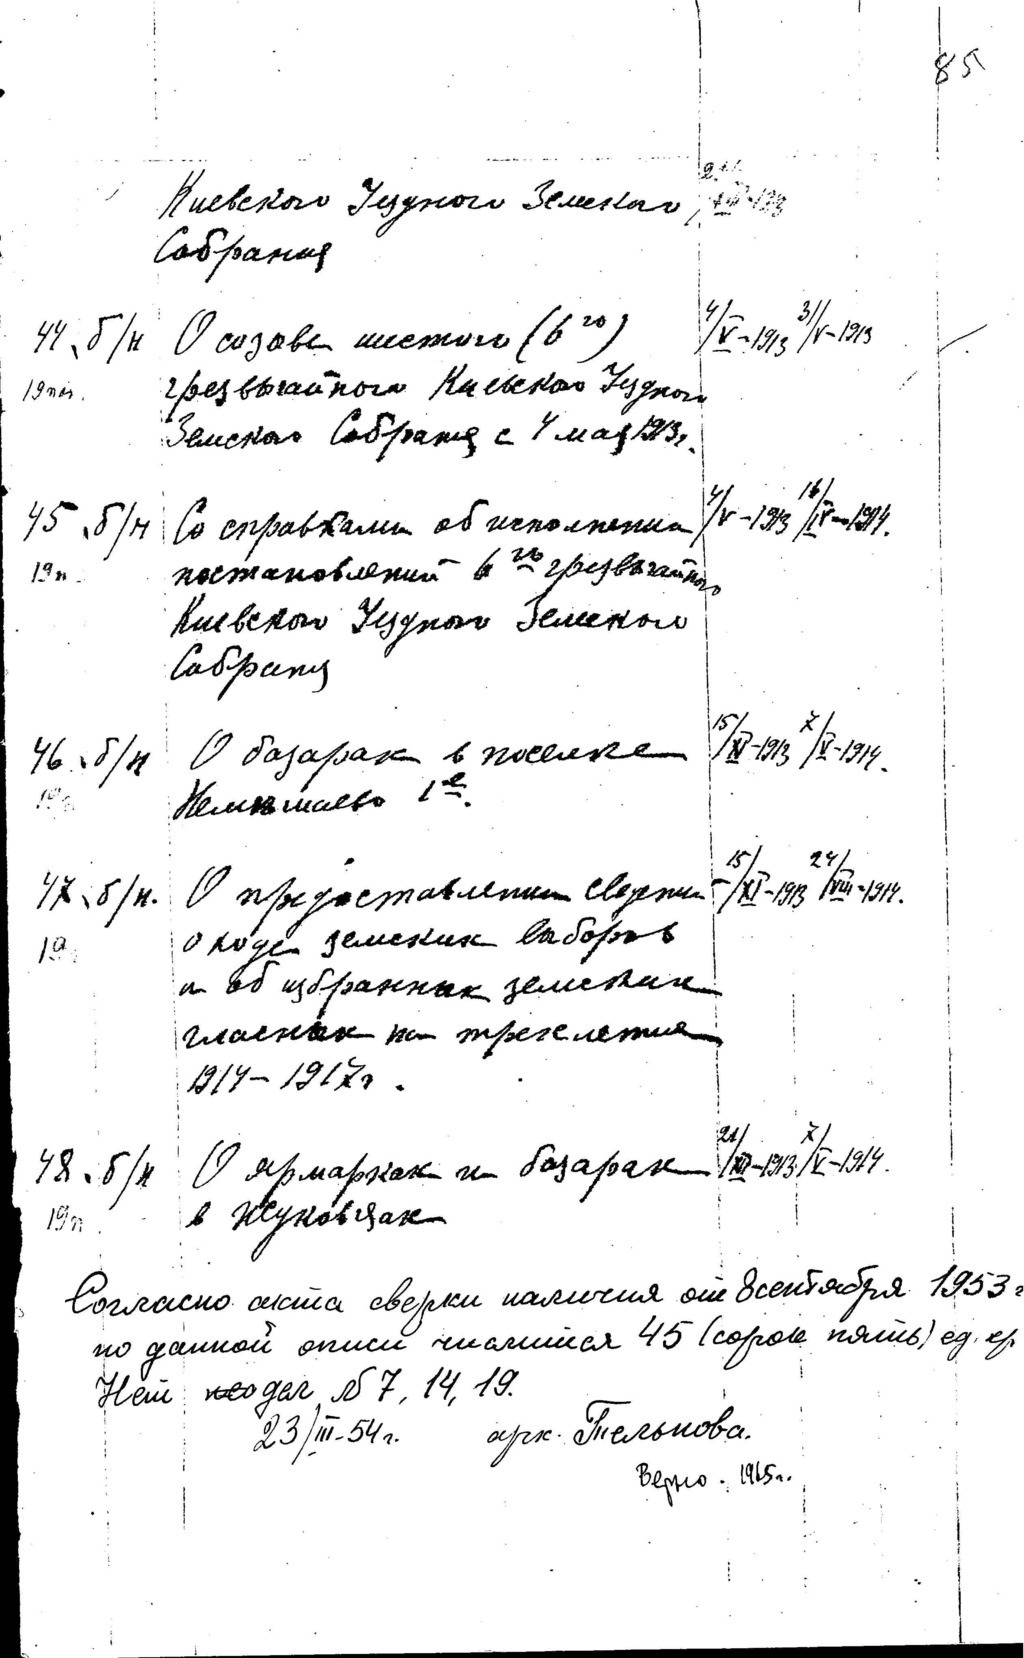 85
Киевского Уездного Земского
Собрания
44. б/н О созове шестого (6го) 4/V-1913 31/V-1913
чрезвычайного Киевского Уездного
Земского Собрания с 4 мая 1913г.
45. б/н Со справками об исполнении 4/V-1913 16/IV-1914.
19п. постановлений 6го чрезвычайного
Киевского Уездного Земского
Собрания
46. б/н О базарах в поселке 15/XI-1913 7/V-1914.
Немешаево 1е.
47. б/н. О предоставлении сведений 15/XI-1913 24/VIII-1914.
о ходе земских выборов
и об избранных земских
гласных на трехлетие
1914-1917г.
48. б/н О ярмарках и базарах 21/XII-1913 7/V-1914.
19п в Жуковцах
Согласно акта сверки наличия от 8 сентября 1953 г
по данной описи числится 45 (сорок пять) ед. хр
Нет дел № 7, 14, 19.
23/III-54г. арх. Тельнова.
Верно. 1965г.